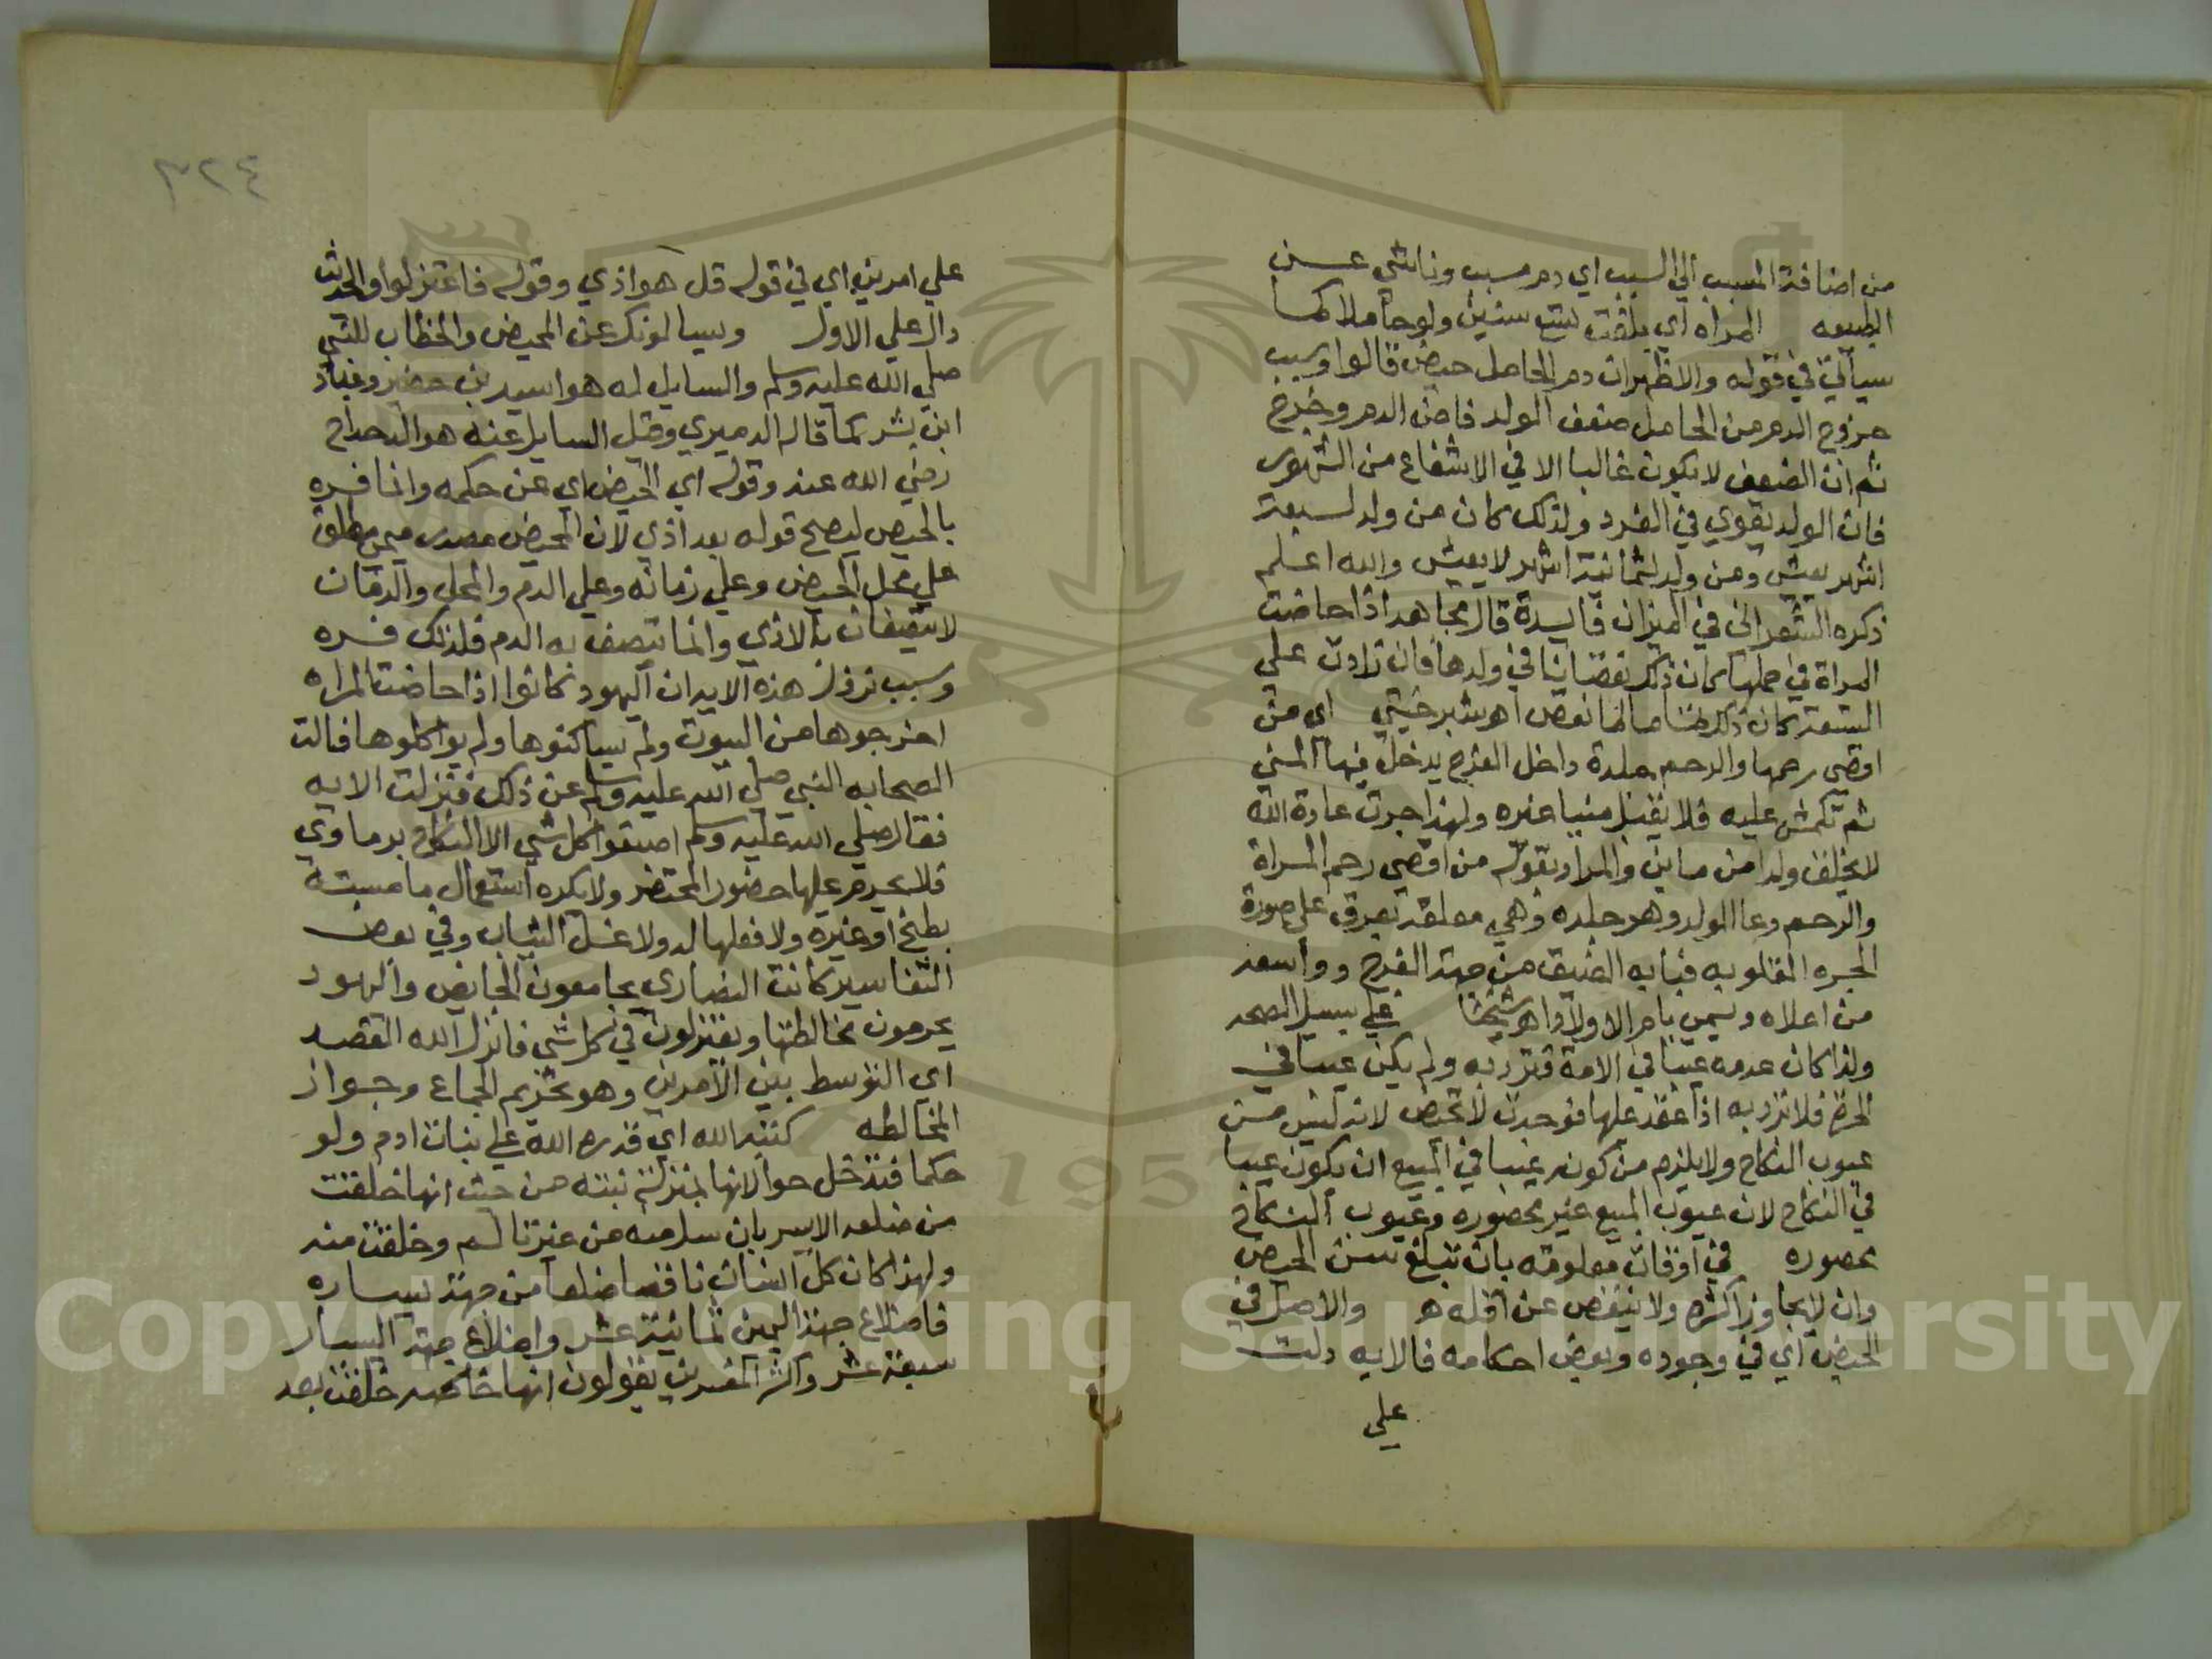 من اضافة المسبب الي السبب اي دم مسبب وناشي عن
الطبيعه المراه اي بلغت تسع سنين ولو حاملا كما
سياتي في قوله والاظهر ان دم الحامل حيض قالوا وسبب
خروج الدم من الحامل ضعف الولد فاض الدم وخرج
ثم ان الضعف لا يكون غالبا الا في الاشفاع من الشهور
فان الولد يقوي في الفرد ولذلك كان من ولد لسبعة
اشهر يعيش ومن ولد لثمانية اشهر لا يعيش والله اعلم
ذكره الشعراني في الميزان فايدة قال مجاهد اذا حاضت
المراة في حملها كان ذلك نقصانا في ولدها فان زادت علي
التسعة كان ذلك تماما لما نقص اهـ شبرخيتي اي من
اقصي رحمها والرحم جلدة داخل الفرج يدخل فيها المني
ثم تكمش عليه فلا تقبل منيا غيره ولهذا جرت عادة الله
لا يخلق ولدا من ماين والمراد بقوله من اقصي رحم المراة
والرحم وعا الولد وهو جلده وهي معلقة بعرق علي صورة
الجره المقلوبه فبابه الضيق من جهة الفرج وواسعه
من اعلاه ويسمي بام الاولاد اهـ شيخنا علي سبيل الصحه
ولذا كان عدمه عيبا في الامة فترد به ولم يكن عيبا في
الحرة فلا ترد به اذا عقد عليها فوجدت لا تحيض لانه ليس من
عيوب النكاح ولا يلزم من كونه عيبا في المبيع ان يكون عيبا
في النكاح لان عيوب المبيع غير محصوره وعيوب النكاح
محصوره في اوقات معلومة بان تبلغ سن الحيض
وان لا يجاوز اكثره ولا ينقص عن اقله هـ والاصل في
الحيض اي في وجوده وبعض احكامه فالايه دلت
علي
٣٢٤
علي امرين اي في قوله قل هو اذي وقوله فاعتزلوا والحديث
دال علي الاول ويسالونك عن المحيض والخطاب للنبي
صلي الله عليه وسلم والسايل له هو اسيد بن حضير وعباد
ابن بشر كما قاله الدميري وقيل السايل عنه هو الدحداح
رضي الله عنه وقوله اي الحيض اي عن حكمه وانما فسره
بالحيض ليصح قوله بعد اذي لان المحيض مصدر ميمي يطلق
علي محل الحيض وعلي زمانه وعلي الدم والمحل والزمان
لا يتصفان بالاذي وانما يتصف به الدم فلذلك فسره
وسبب نزول هذه الايه ان اليهود كانوا اذا حاضت المراه
اخرجوها من البيوت ولم يساكنوها ولم يواكلوها فسالت
الصحابه النبي صلي الله عليه وسلم عن ذلك فنزلت الايه
فقال صلي الله عليه وسلم اصنعوا كل شي الا النكاح برماوي
فلا يحرم عليها حضور المحتضر ولا يكره استعمال ما مسته
بطبخ او غيره ولا فعلها له ولا غسل الثياب وفي بعض
التفاسير كانت النصاري يجامعون الحايض واليهود
يحرمون مخالطتها ويعتزلون في كل شي فانزل الله القصد
اي التوسط بين الامرين وهو تحريم الجماع وجواز
المخالطه كتبه الله اي قدره الله علي بنات ادم ولو
حكما فتدخل حوا لانها بمنزلة بنته من حيث انها خلقت
من ضلعه الايسر بان سل منه من غير تالم وخلقت منه
ولهذا كان كل انسان ناقصا ضلعا من جهة يساره
فاضلاع جهة اليمين ثمانية عشر واضلاع جهة اليسار
سبعة عشر واكثر المفسرين يقولون انها خلقت بعد
Copyright © King Saud University
1957